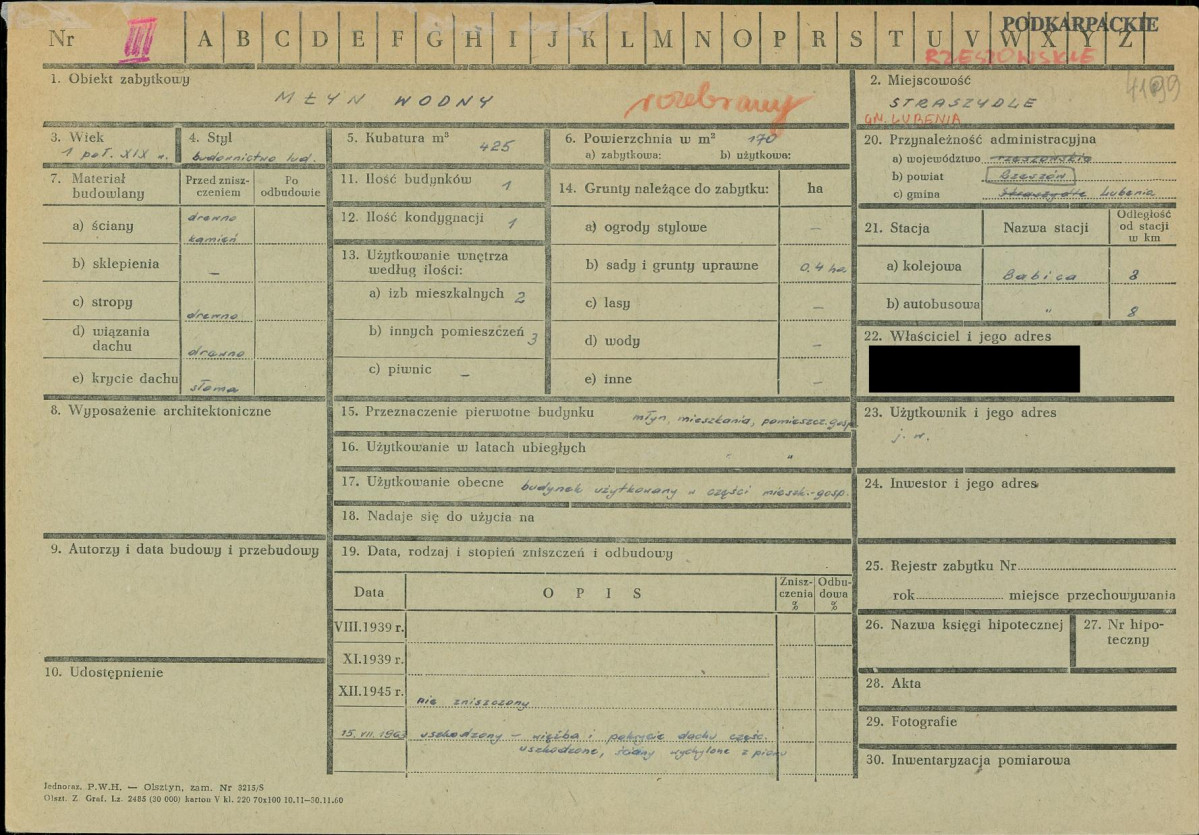 Nr III A B C D E F G H I J K L M N O P R S T U V W X Y Z
PODKARPACKIE
RZESZOWSKIE
1. Obiekt zabytkowy
MŁYN WODNY
rozebrany
2. Miejscowość
STRASZYDLE
GM. LUBENIA
3. Wiek
1 poł. XIX w.
4. Styl
budownictwo lud.
5. Kubatura m³
425
6. Powierzchnia w m² 170
a) zabytkowa: b) użytkowa:
7. Materiał budowlany
Przed zniszczeniem
Po odbudowie
a) ściany
drewno
kamień
b) sklepienia
–
c) stropy
drewno
d) wiązania dachu
drewno
e) krycie dachu
słoma
11. Ilość budynków
1
12. Ilość kondygnacji
1
13. Użytkowanie wnętrza
według ilości:
a) izb mieszkalnych 2
b) innych pomieszczeń 3
c) piwnic –
14. Grunty należące do zabytku: ha
a) ogrody stylowe –
b) sady i grunty uprawne 0,4 ha
c) lasy
d) wody –
e) inne –
20. Przynależność administracyjna
a) województwo rzeszowskie
b) powiat Rzeszów
c) gmina Straszydle Lubenia
21. Stacja
Nazwa stacji
Odległość
od stacji
w km
a) kolejowa Babica 8
b) autobusowa " 8
22. Właściciel i jego adres
8. Wyposażenie architektoniczne
15. Przeznaczenie pierwotne budynku młyn, mieszkania, pomieszcz. gosp.
16. Użytkowanie w latach ubiegłych "
17. Użytkowanie obecne budynek użytkowany w części mieszk.-gosp.
18. Nadaje się do użycia na
23. Użytkownik i jego adres
j. w.
24. Inwestor i jego adres
9. Autorzy i data budowy i przebudowy
19. Data, rodzaj i stopień zniszczeń i odbudowy
Data
O P I S
Znisz-
czenia
%
Odbu-
dowa
%
VIII.1939 r.
XI.1939 r.
XII.1945 r. nie zniszczony
15.VII.1963 uszkodzony – więźba i pokrycie dachu częśc.
uszkodzone, ściany wychylone z pionu
25. Rejestr zabytku Nr
rok miejsce przechowywania
26. Nazwa księgi hipotecznej
27. Nr hipo-
teczny
10. Udostępnienie
28. Akta
29. Fotografie
30. Inwentaryzacja pomiarowa
Jednoraz. P.W.H. — Olsztyn, zam. Nr 3215/S
Olszt. Z. Graf. Lz. 2485 (30 000) karton V kl. 220 70x100 10.11—30.11.60